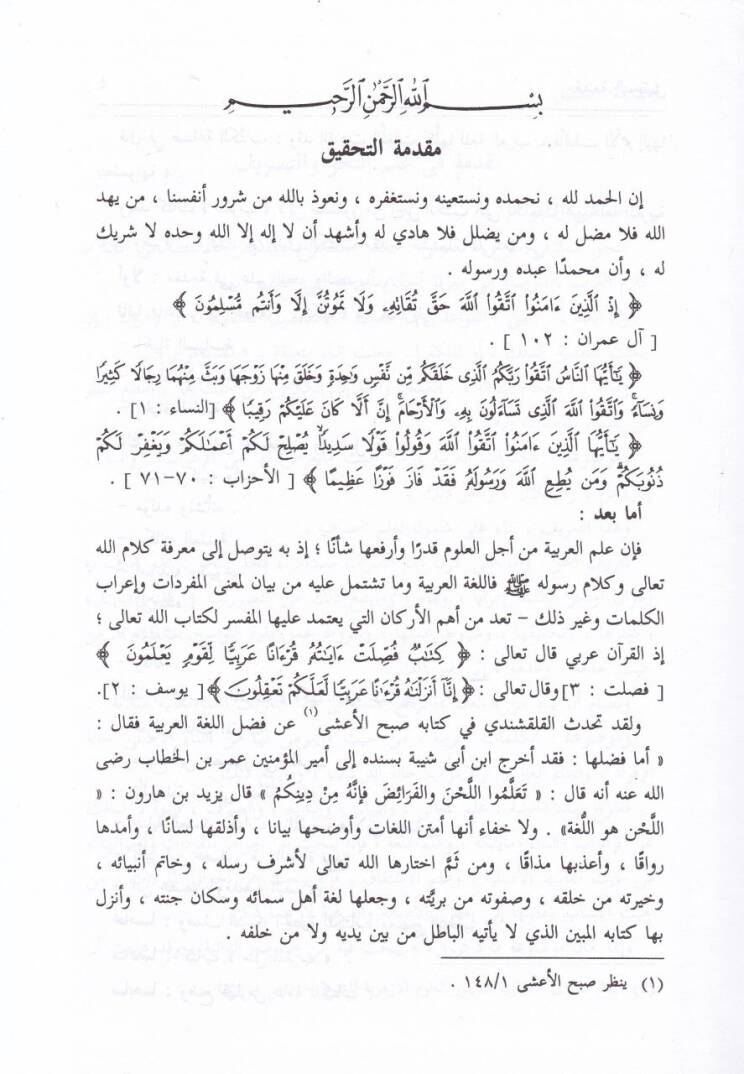 بسم الله الرحمن الرحيم
مقدمة التحقيق
إن الحمد لله ، نحمده ونستعينه ونستغفره ، ونعوذ بالله من شرور أنفسنا ، من يهد
الله فلا مضل له ، ومن يضلل فلا هادي له وأشهد أن لا إله إلا الله وحده لا شريك
له ، وأن محمدًا عبده ورسوله .
﴿ يَٰٓأَيُّهَا ٱلَّذِينَ ءَامَنُوا۟ ٱتَّقُوا۟ ٱللَّهَ حَقَّ تُقَاتِهِۦ وَلَا تَمُوتُنَّ إِلَّا وَأَنتُم مُّسْلِمُونَ ﴾
[ آل عمران : ١٠٢ ] .
﴿ يَٰٓأَيُّهَا ٱلنَّاسُ ٱتَّقُوا۟ رَبَّكُمُ ٱلَّذِى خَلَقَكُم مِّن نَّفْسٍ وَٰحِدَةٍ وَخَلَقَ مِنْهَا زَوْجَهَا وَبَثَّ مِنْهُمَا رِجَالًا كَثِيرًا
وَنِسَآءً وَٱتَّقُوا۟ ٱللَّهَ ٱلَّذِى تَسَآءَلُونَ بِهِۦ وَٱلْأَرْحَامَ إِنَّ ٱللَّهَ كَانَ عَلَيْكُمْ رَقِيبًا ﴾ [النساء : ١] .
﴿ يَٰٓأَيُّهَا ٱلَّذِينَ ءَامَنُوا۟ ٱتَّقُوا۟ ٱللَّهَ وَقُولُوا۟ قَوْلًا سَدِيدًا يُصْلِحْ لَكُمْ أَعْمَٰلَكُمْ وَيَغْفِرْ لَكُمْ
ذُنُوبَكُمْ وَمَن يُطِعِ ٱللَّهَ وَرَسُولَهُۥ فَقَدْ فَازَ فَوْزًا عَظِيمًا ﴾ [ الأحزاب : ٧٠-٧١ ] .
أما بعد :
فإن علم العربية من أجل العلوم قدرًا وأرفعها شأنًا ؛ إذ به يتوصل إلى معرفة كلام الله
تعالى وكلام رسوله ﷺ فاللغة العربية وما تشتمل عليه من بيان لمعنى المفردات وإعراب
الكلمات وغير ذلك – تعد من أهم الأركان التي يعتمد عليها المفسر لكتاب الله تعالى ؛
إذ القرآن عربي قال تعالى : ﴿ كِتَٰبٌ فُصِّلَتْ ءَايَٰتُهُۥ قُرْءَانًا عَرَبِيًّا لِّقَوْمٍ يَعْلَمُونَ ﴾
[ فصلت : ٣] وقال تعالى : ﴿ إِنَّآ أَنزَلْنَٰهُ قُرْءَٰنًا عَرَبِيًّا لَّعَلَّكُمْ تَعْقِلُونَ ﴾ [ يوسف : ٢].
ولقد تحدث القلقشندي في كتابه صبح الأعشى(١) عن فضل اللغة العربية فقال :
« أما فضلها : فقد أخرج ابن أبى شيبة بسنده إلى أمير المؤمنين عمر بن الخطاب رضى
الله عنه أنه قال : « تَعَلَّمُوا اللَّحْنَ والفَرَائِضَ فإنَّهُ مِنْ دِينِكُمُ » قال يزيد بن هارون : «
اللَّحْنِ هو اللُّغَة» . ولا خفاء أنها أمتن اللغات وأوضحها بيانا ، وأذلقها لسانًا ، وأمدها
رواقًا ، وأعذبها مذاقًا ، ومن ثَمَّ اختارها الله تعالى لأشرف رسله ، وخاتم أنبيائه ،
وخيرته من خلقه ، وصفوته من بريَّته ، وجعلها لغة أهل سمائه وسكان جنته ، وأنزل
بها كتابه المبين الذي لا يأتيه الباطل من بين يديه ولا من خلفه
(١) ينظر صبح الأعشى ١٤٨/١ .